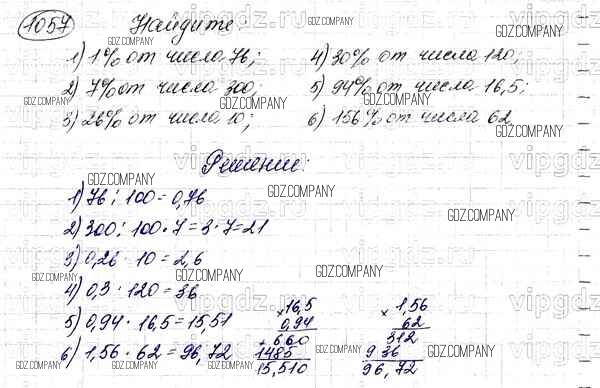 1057 Найдите:
1) 1% от числа 76;
2) 7% от числа 300;
3) 26% от числа 10;
4) 30% от числа 120;
5) 94% от числа 16,5;
6) 156% от числа 62
Решение:
1) 76 : 100 = 0,76
2) 300 : 100 · 7 = 3 · 7 = 21
3) 0,26 · 10 = 2,6
4) 0,3 · 120 = 36
5) 0,94 · 16,5 = 15,51
6) 1,56 · 62 = 96,72
× 16,5
0,94
+ 660
1485
15,510
× 1,56
62
312
9 36
96,72
GDZ.COMPANY
vipgdz.ru